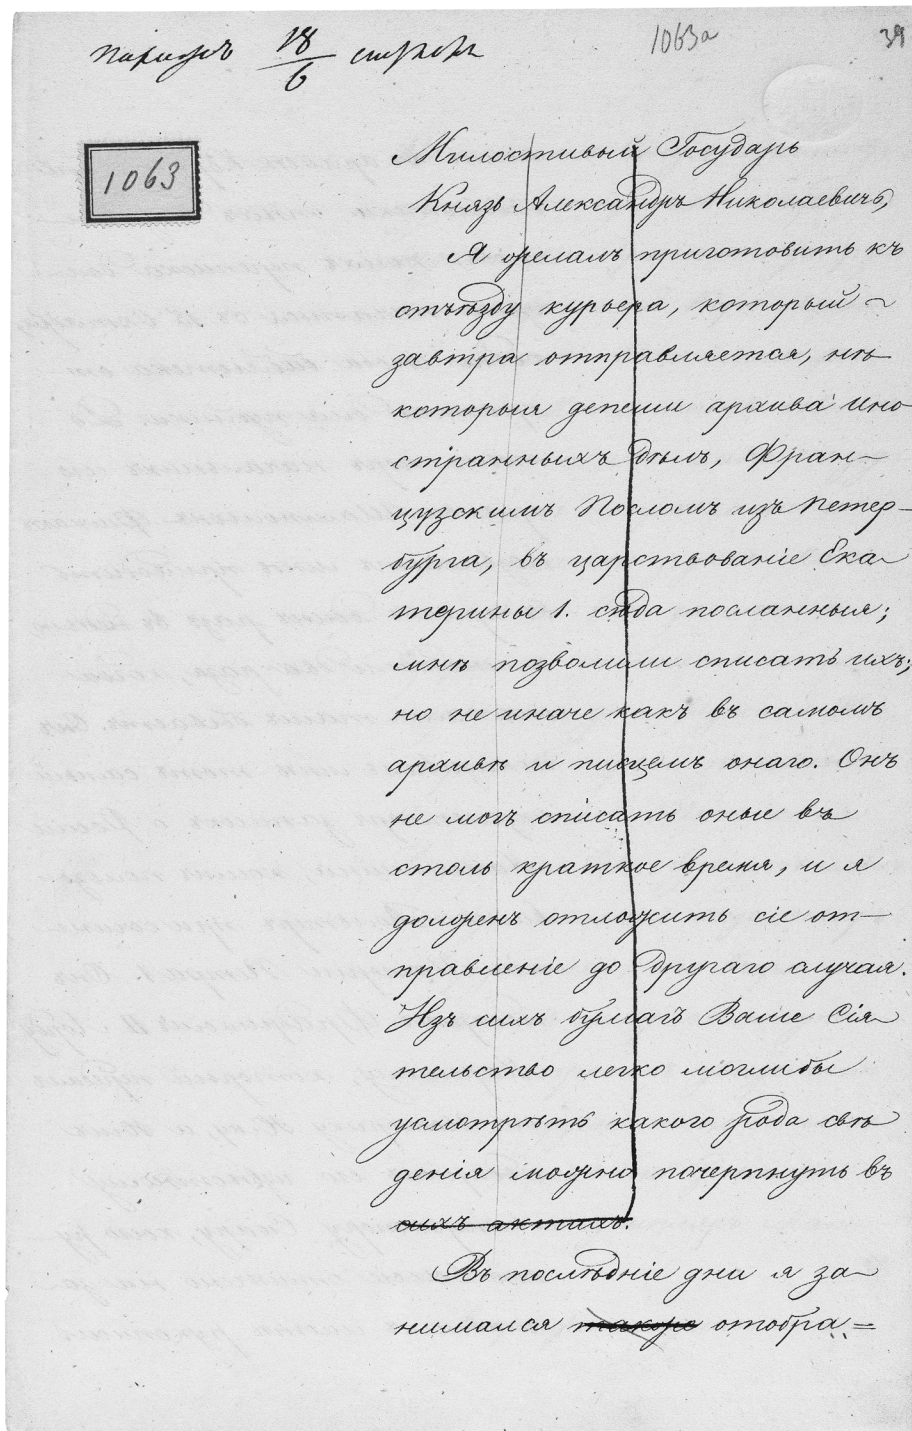 Парижъ 18/6
1063а
39
1063
Милостивый Государь
Князь Александръ Николаевичъ,
Я желалъ приготовить къ
отъѣзду курьера, который ~
завтра отправляется, нѣ-
которыя депеши архива Ино-
странныхъ дѣлъ, Фран-
цузскимъ Посломъ изъ Петер-
бурга, въ царствованіе Ека-
терины 1. сюда посланныя;
мнѣ позволили списать ихъ;
но не иначе какъ въ самомъ
архивѣ и писцемъ онаго. Онъ
не могъ списать оные въ
столь краткое время, и я
долженъ отложить сіе от-
правленіе до другаго случая.
Изъ сихъ бумагъ Ваше Сія-
тельство легко моглибы
усмотрѣть какого рода свѣ
денія можно почерпнуть въ
сихъ актахъ.
Въ послѣдніе дни я за-
нимался также отобра=